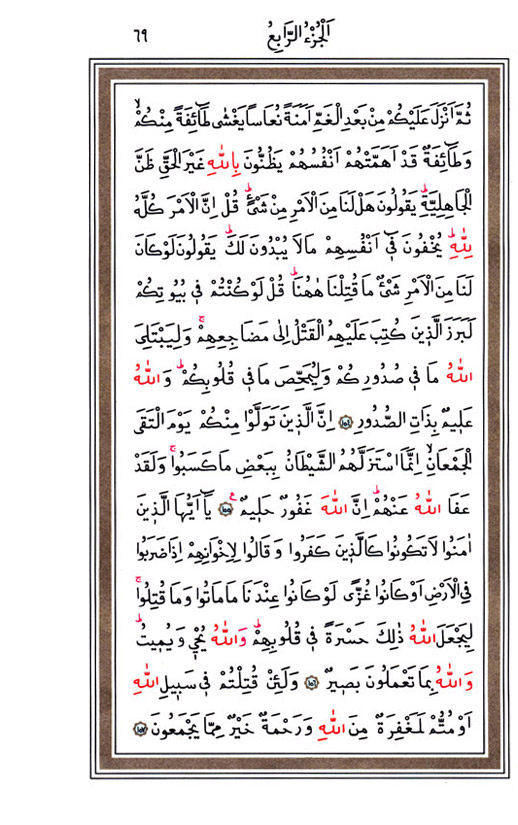 اَلْجُزْءُ الرَّابِعُ ٦٩
ثُمَّ اَنْزَلَ عَلَيْكُمْ مِنْ بَعْدِ الْغَمِّ اَمَنَةً نُعَاسًا يَغْشٰى طَٓائِفَةً مِنْكُمْۙ
وَطَٓائِفَةٌ قَدْ اَهَمَّتْهُمْ اَنْفُسُهُمْ يَظُنُّونَ بِاللّٰهِ غَيْرَ الْحَقِّ ظَنَّ
الْجَاهِلِيَّةِۜ يَقُولُونَ هَلْ لَنَا مِنَ الْاَمْرِ مِنْ شَيْءٍۜ قُلْ اِنَّ الْاَمْرَ كُلَّهُ
لِلّٰهِۜ يُخْفُونَ ف۪ٓي اَنْفُسِهِمْ مَا لَا يُبْدُونَ لَكَۜ يَقُولُونَ لَوْ كَانَ
لَنَا مِنَ الْاَمْرِ شَيْءٌ مَا قُتِلْنَا هٰهُنَاۜ قُلْ لَوْ كُنْتُمْ ف۪ي بُيُوتِكُمْ
لَبَرَزَ الَّذ۪ينَ كُتِبَ عَلَيْهِمُ الْقَتْلُ اِلٰى مَضَاجِعِهِمْۚ وَلِيَبْتَلِيَ
اللّٰهُ مَا ف۪ي صُدُورِكُمْ وَلِيُمَحِّصَ مَا ف۪ي قُلُوبِكُمْۜ وَاللّٰهُ
عَل۪يمٌ بِذَاتِ الصُّدُورِ ﴿١٥٤﴾ اِنَّ الَّذ۪ينَ تَوَلَّوْا مِنْكُمْ يَوْمَ الْتَقَى
الْجَمْعَانِۙ اِنَّمَا اسْتَزَلَّهُمُ الشَّيْطَانُ بِبَعْضِ مَا كَسَبُواۚ وَلَقَدْ
عَفَا اللّٰهُ عَنْهُمْۜ اِنَّ اللّٰهَ غَفُورٌ حَل۪يمٌ۟ ﴿١٥٥﴾ يَٓا اَيُّهَا الَّذ۪ينَ
اٰمَنُوا لَا تَكُونُوا كَالَّذ۪ينَ كَفَرُوا وَقَالُوا لِاِخْوَانِهِمْ اِذَا ضَرَبُوا
فِي الْاَرْضِ اَوْ كَانُوا غُزًّى لَوْ كَانُوا عِنْدَنَا مَا مَاتُوا وَمَا قُتِلُواۚ
لِيَجْعَلَ اللّٰهُ ذٰلِكَ حَسْرَةً ف۪ي قُلُوبِهِمْۜ وَاللّٰهُ يُحْي۪ وَيُم۪يتُۜ
وَاللّٰهُ بِمَا تَعْمَلُونَ بَص۪يرٌ ﴿١٥٦﴾ وَلَئِنْ قُتِلْتُمْ ف۪ي سَب۪يلِ اللّٰهِ
اَوْ مُتُّمْ لَمَغْفِرَةٌ مِنَ اللّٰهِ وَرَحْمَةٌ خَيْرٌ مِمَّا يَجْمَعُونَ ﴿١٥٧﴾